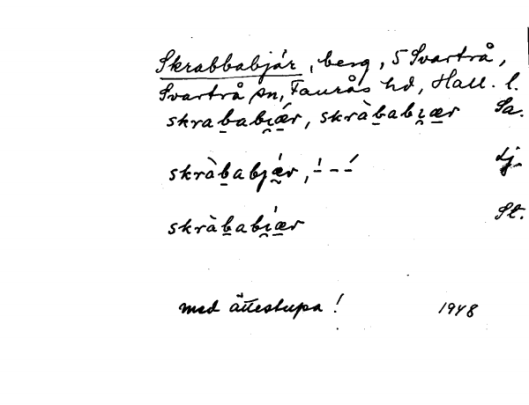 Skrabbabjär, berg, S Svartrå,
Svartrå sn, Faurås hd, Hall. l.
skrababi̯ǽr, skràbabi̯ær Sa.
skràbabjǽr, '--́ Lj.
skràbabi̯ǽr St.
med ättestupa! 1948